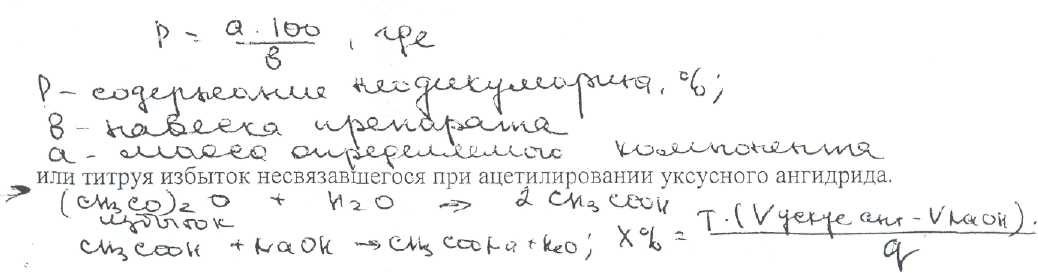 P = a·100/в , где
P – содержание неодикумарина, %;
в – навеска препарата
a – масса определяемого компонента
или титруя избыток несвязавшегося при ацетилировании уксусного ангидрида.
(CH3CO)2O + H2O → 2 CH3COOH
избыток
CH3COOH + NaOH → CH3COONa + H2O; X% = T·(Vуксус анг - VNaOH)·/q